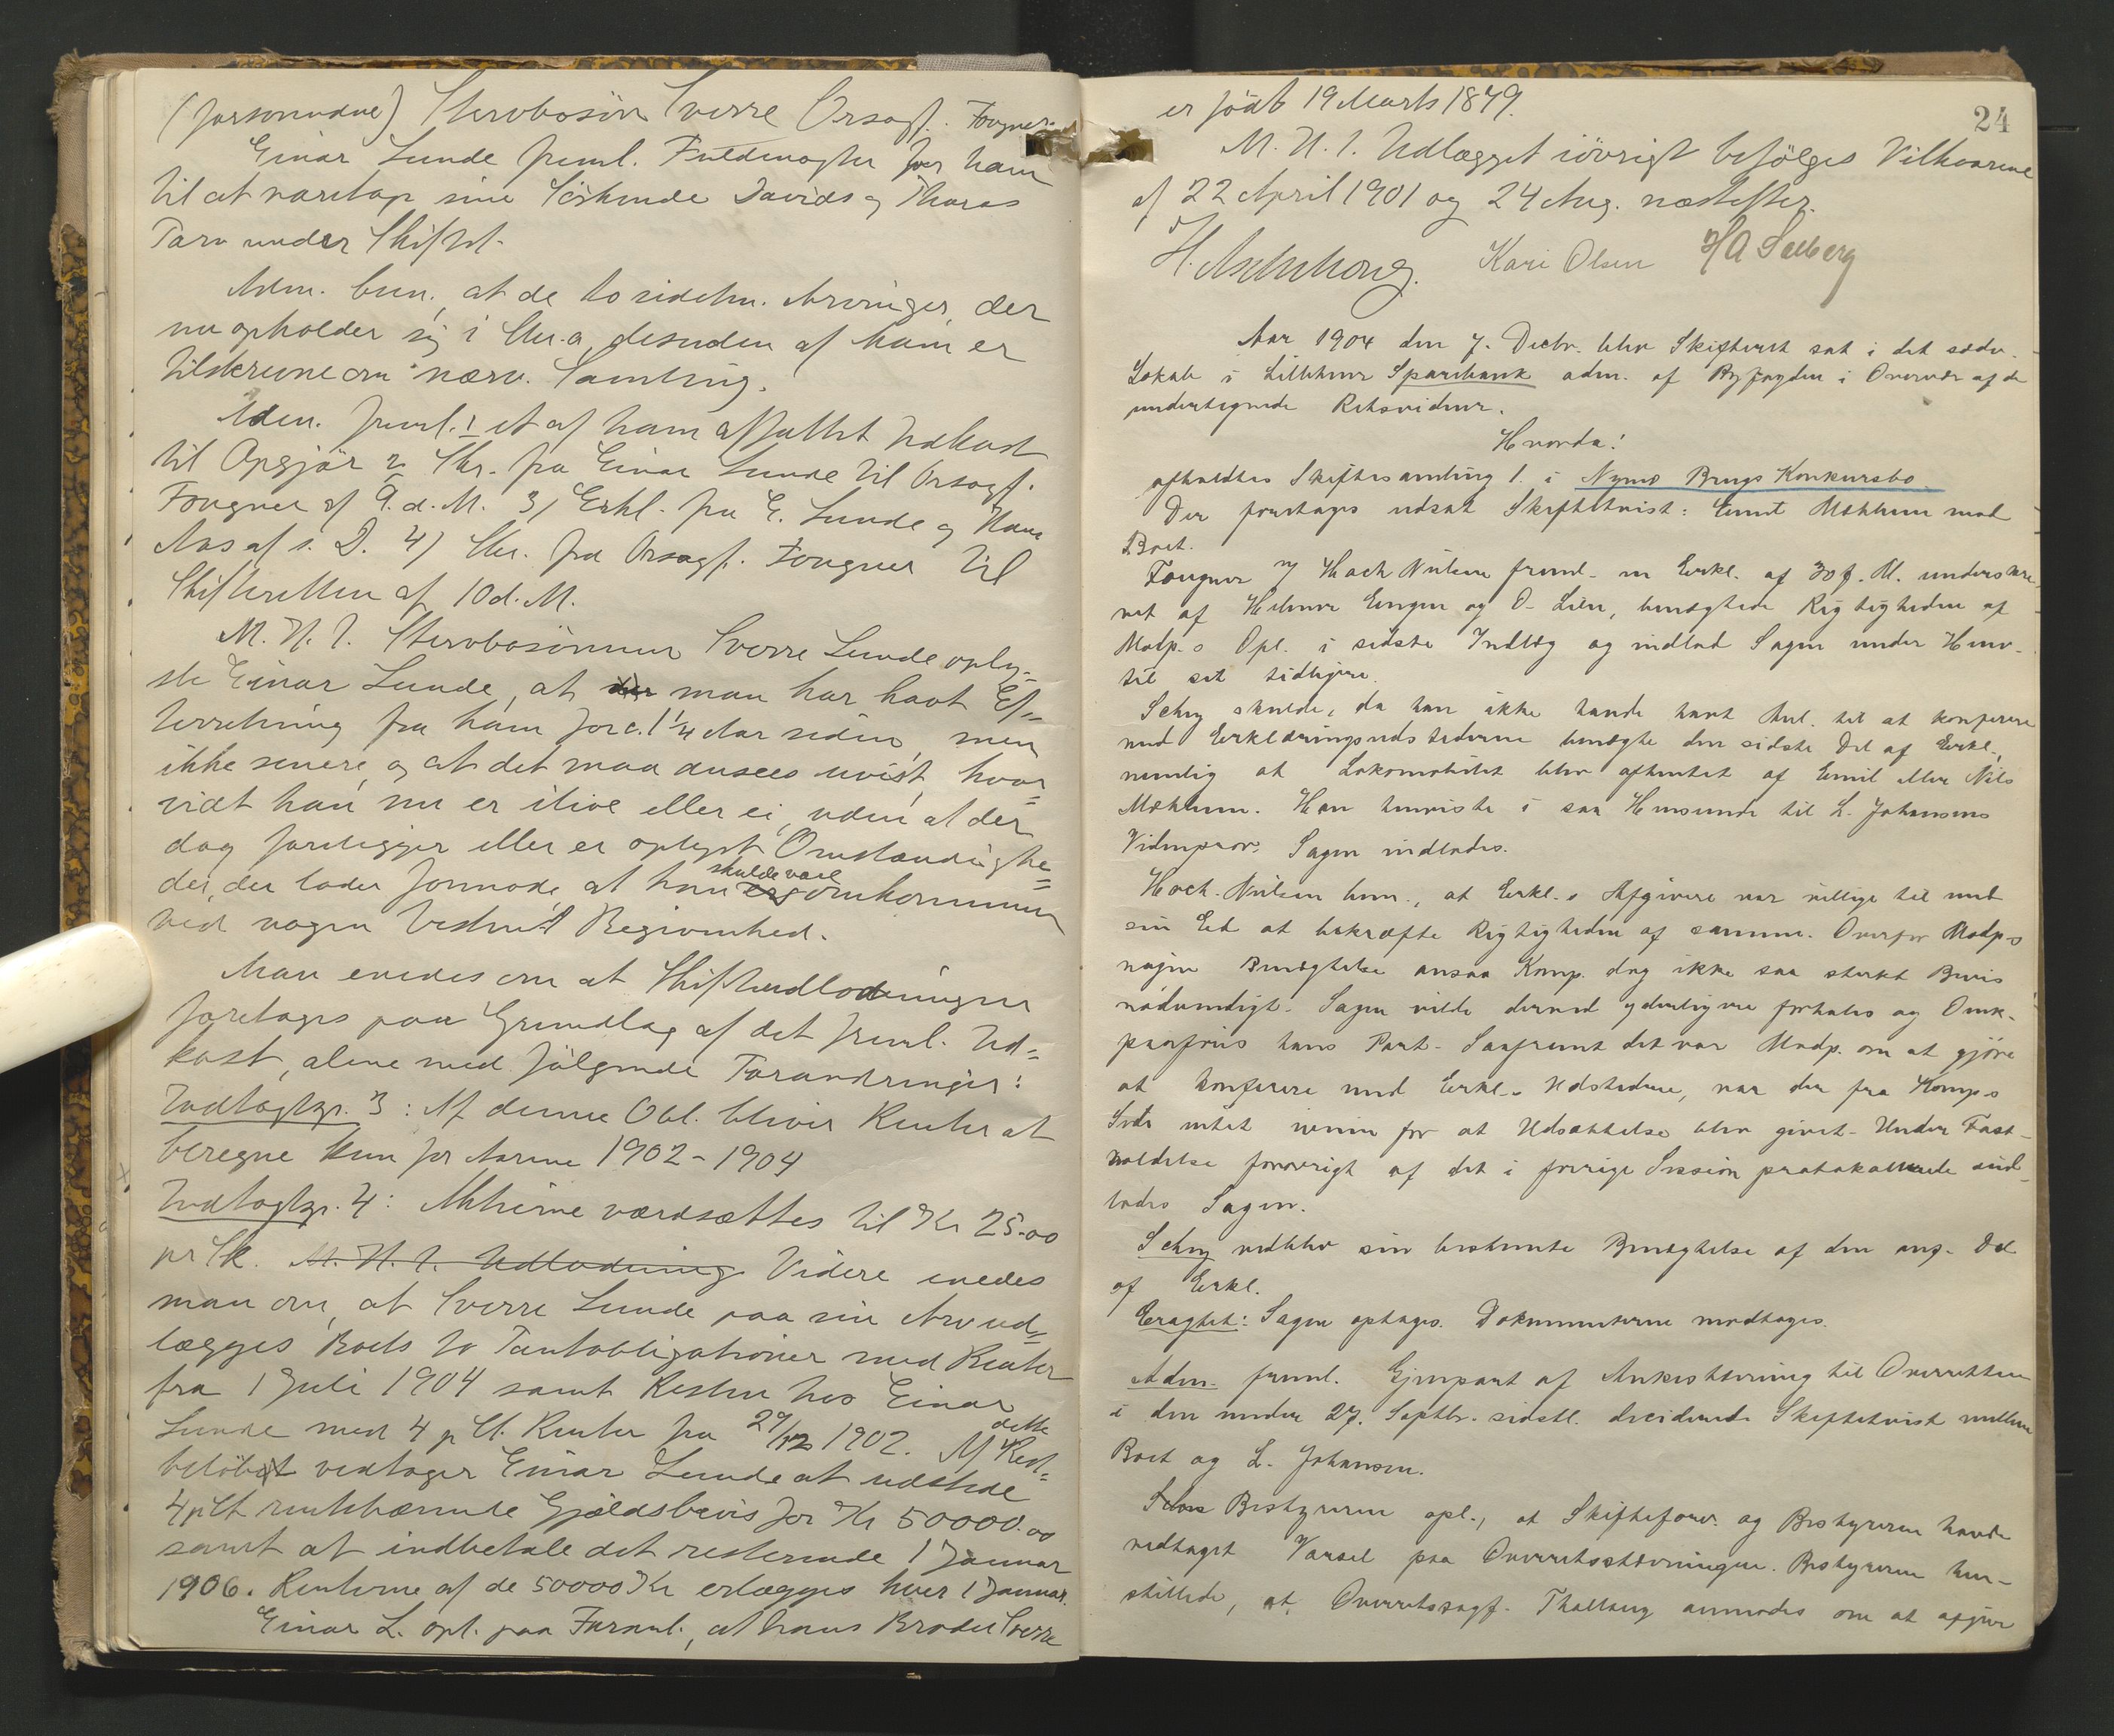 (forsvundne) Stervbosön Sverre Orsagf. Fougner.
Einar Lunde freml. Fuldmagter for ham
til at varetage sine Söskende Davids og Tharas
Tarv under Skiftet.
Adm. bem. at de to sidstn. Arvinger, der
nu opholder sig i Chr.a, desuden af ham er
tilskrevne om nærv. Samling.
Adm. freml. 1 et af ham affattet Udkast
til Opgjör 2 Skr. fra Einar Lunde til Orsagf.
Fougner af 9. d. M. 3) Erkl. fra E. Lunde og Hans
Aas af s. D. 4) Skr. fra Orsagf. Fougner til
Skifteretten af 10 d. M.
M. H. t. Stervbosönnen Sverre Lunde oply=
ste Einar Lunde, at man har havt Ef=
terretning fra ham for c. 1 1/4 Aar siden, men
ikke senere, og at det maa ansees uvist, hvor=
vidt han nu er ilive eller ei, uden at der
dog foreligger eller er oplyst Omstændighe=
der, der lader formode, at han skulde være omkommen
ved nogen bestemt Begivenhed.
Man enedes om at Skifteudlodningen
foretages paa Grundlag af det freml. Ud=
kast, alene med fölgende Forandringer:
Indtægtsp. 3: Af denne Obl. bliver Renter at
beregne kun for Aarene 1902-1904
Indtægtsp. 4: Aktierne værdsættes til Kr 25.00
pr Stk. M. H. t. Udlodning Videre enedes
man om, at Sverre Lunde paa sin Arv ud=
lægges Boets to Pantobligationer med Renter
fra 1 Juli 1904 samt Resten hos Einar
Lunde med 4 p Ct. Renter fra 29/12 1902. Af dette Rest=
belöb vedtager Einar Lunde at udstede
4 pCt rentebærende Gjældsbevis for Kr 50000.00
samt at indbetale det resterende 1 Januar
1906. Renterne af de 50000 Kr erlægges hver 1 Januar.
Einar L. opl. paa Foranl., at hans Broder Sverre
24
er födt 19 Marts 1879.
M. H. t. Udlægget iövrigt befölges Vilkaarene
af 22 April 1901 og 24 Aug. næstefter.
H. Aschehoug. Kari Olsen HA Selberg
Aar 1904 den 7. Decbr. blev Skifteret sat i det sædv.
Lokale i Lillehmr Sparebank adm. af Byfogden i Overvær af de
undertegnede Retsvidner.
Hvorda!
afholdtes Skiftesamling 1. i Nymo Brugs Konkursbo
Der foretages udsat Skiftetvist: Emil Mæhlum mod
Boet.
Fougner v/ Hoch Nielsen freml. en Erkl. af 30 f. M. underskre-
vet af Hilmar Engen og O. Lien, benægtede Rigtigheden af
Modp.s Opl. i sidste Indlæg og indlod Sagen under Henv.
til sit tidligere.
Schey skulde, da han ikke havde havt Anl. til at konferere
med Erklæringsudstederne benægte den sidste Del af Erkl.,
nemlig at Lokomobilet blev afhentet af Emil eller Nils
Mæhlum. Han henviste i saa Henseende til L. Johansens
Vidneprov. Sagen indlodes.
Hoch-Nielsen bem., at Erkl.s Afgivere var villige til med
sin Ed at bekræfte Rigtigheden af samme. Overfor Modp.s
nøgne Benægtelse ansaa Komp. dog ikke saa sterkt Bevis
nödvendigt. Sagen vilde derved yderligere forhales og Omk.
paaføres hans Part. Saafremt det var Modp. om at gjöre
at konferere med Erkl.s Udstedere, var der fra Komp.s
Side intet iveien for at Udsættelse blev givet. Under Fast-
holdelse forøvrigt af det i forrige Session protokollerede ind-
lodes Sagen.
Schey vedblev sin bestemte Benægtelse af den ang. Del
af Erkl.
Eragtet: Sagen optages. Dokumenterne modtages.
Adm. freml. Gjenpart af Ankestævning til Overretten
i den under 27. Septbr. sidstl. deciderede Skiftetvist mellem
Boet og L. Johansen.
Bestyreren opl., at Skifteforv. og Bestyreren havde
vedtaget Varsel paa Overretsstævningen. Bestyreren hen-
stillede, at Overretssagf. Thallaug anmodes om at afgive